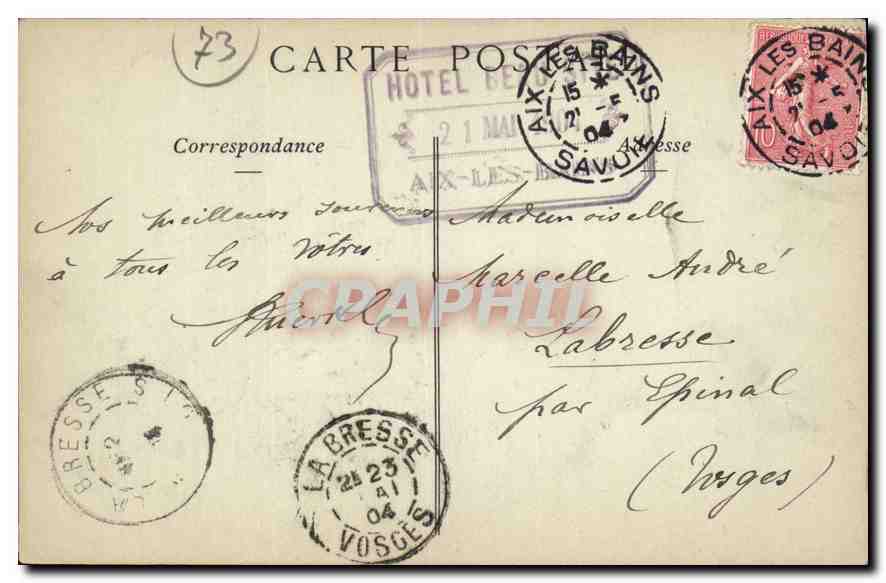 73
CARTE POSTALE
HOTEL
21 MAI 04
AIX-LES-BAINS
AIX LES BAINS
15
21 -5
04
SAVOIE
AIX LES BAINS
15
21 -5
04
SAVOIE
10
Correspondance
Adresse
Nos meilleurs souvenirs
à tous les vôtres
Mademoiselle
Marcelle André
Labresse
par Epinal
(Vosges)
CPAPHIL
LA BRESSE
23
MAI
04
VOSGES
BRESSE